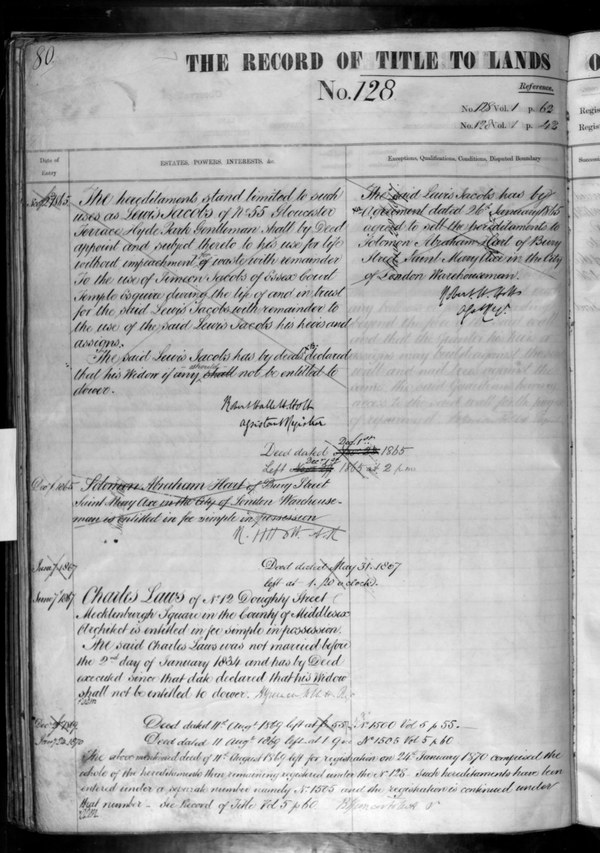 80
THE RECORD OF TITLE TO LANDS
O
No. 128
Reference.
No. 128 Vol. 1 p. 62
No. 128 Vol. 1 p. 43
Regis
Regis
Date of
Entry
ESTATES, POWERS, INTERESTS, &c.
Exceptions, Qualifications, Conditions, Disputed Boundary
1865
The hereditaments stand limited to such
uses as Lewis Jacobs of No 55 Gloucester
Terrace Hyde Park Gentleman shall by Deed
appoint and subject thereto to his use for life
without impeachment of waste with remainder
To the use of Simeon Jacobs of Essex Court
Temple Esquire during the life of and in trust
for the said Lewis Jacobs with remainder to
the use of the said Lewis Jacobs his heirs and
assigns.
The said Lewis Jacobs has by deed declared
that his Widow if any should shall not be entitled to
dower.
Robert Hallett Holt
Assistant Registrar
The said Lewis Jacobs has by
Agreement dated 26th January 1865
agreed to sell the hereditaments to
Solomon Abraham Hart of Bury
Street Saint Mary Axe in the City
of London Warehouseman.
Robert H. Holt
Asst Regr
Deed dated Decr 1st 1865
Left 1865 at 2 pm
Decr 1865
Solomon Abraham Hart of Bury Street
Saint Mary Axe in the City of London Warehouse-
man is entitled in fee simple in possession
June 7 1867
Deed dated May 31. 1867
left at 1.20 o'clock.
June 7 1867
Charles Laws of No 12 Doughty Street
Mecklenburgh Square in the County of Middlesex
Architect is entitled in fee simple in possession.
The said Charles Laws was not married before
the 2nd day of January 1834 and has by Deed
executed since that date declared that his Widow
shall not be entitled to dower.
Deed dated 11th Augt 1869 left at No 1500 Vol 5 p 55.
1870
Deed dated 11 Augt 1869 left at No 1505 Vol 5 p 60
The above mentioned deed of 11th August 1869 left for registration on 24th January 1870 comprised the
whole of the hereditaments then remaining registered under the No 128. Such hereditaments have been
entered under a separate number namely No 1505 and the registration is continued under
that number - See Record of Title Vol 5 p 60